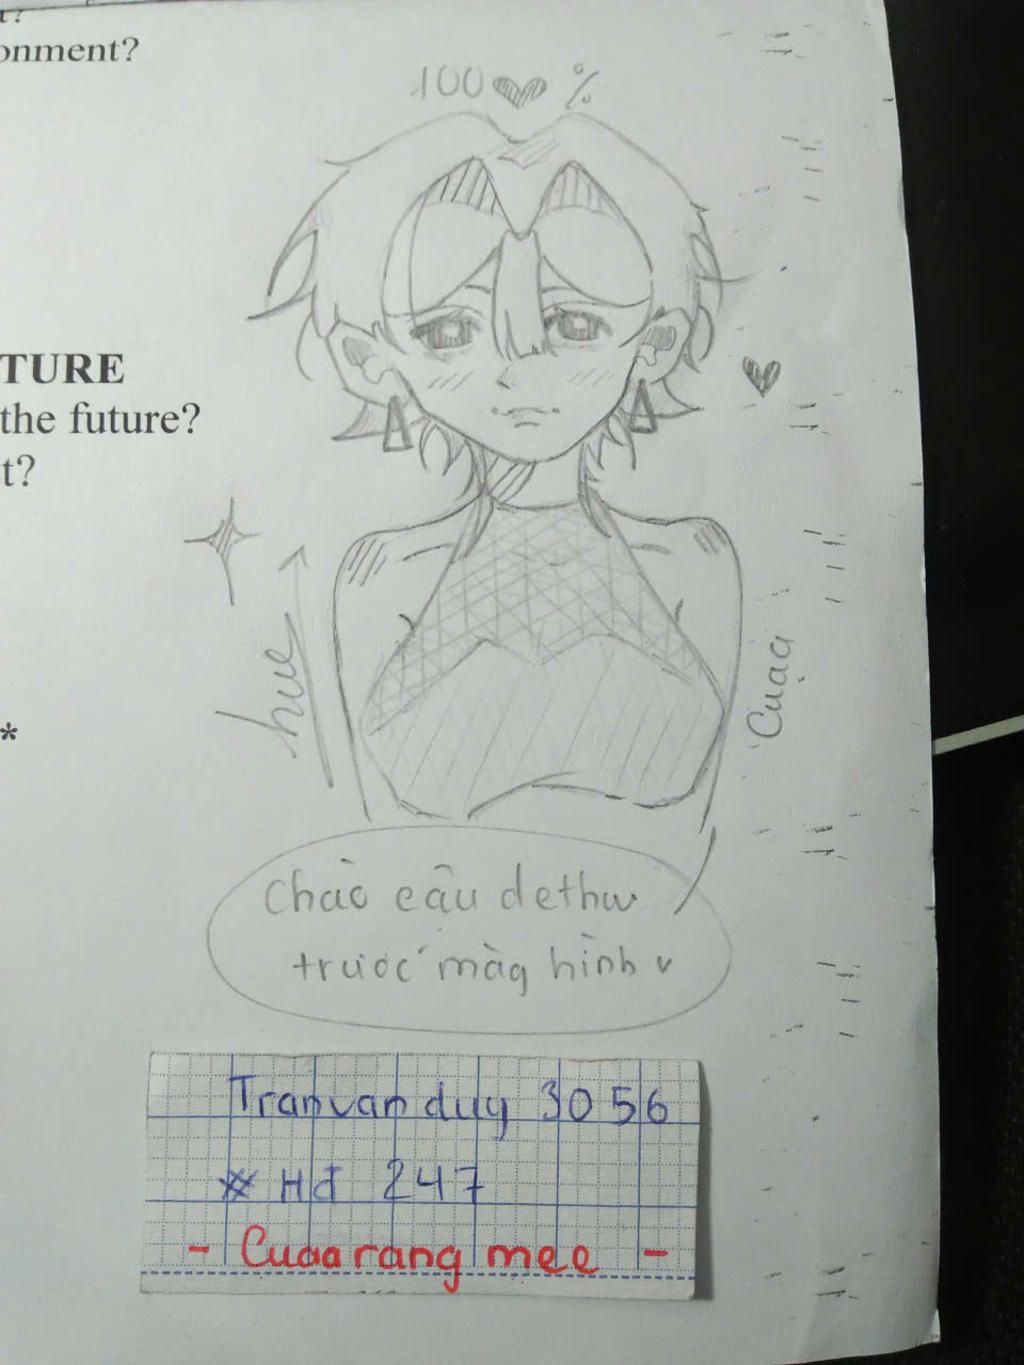 onment?
100 %
TURE
the future?
t?
hue
Cuaa
*
Chào cậu dethw
trước màq hình
Tranvan duy 3056
# Hđ 247
- Cuaa rang mee -